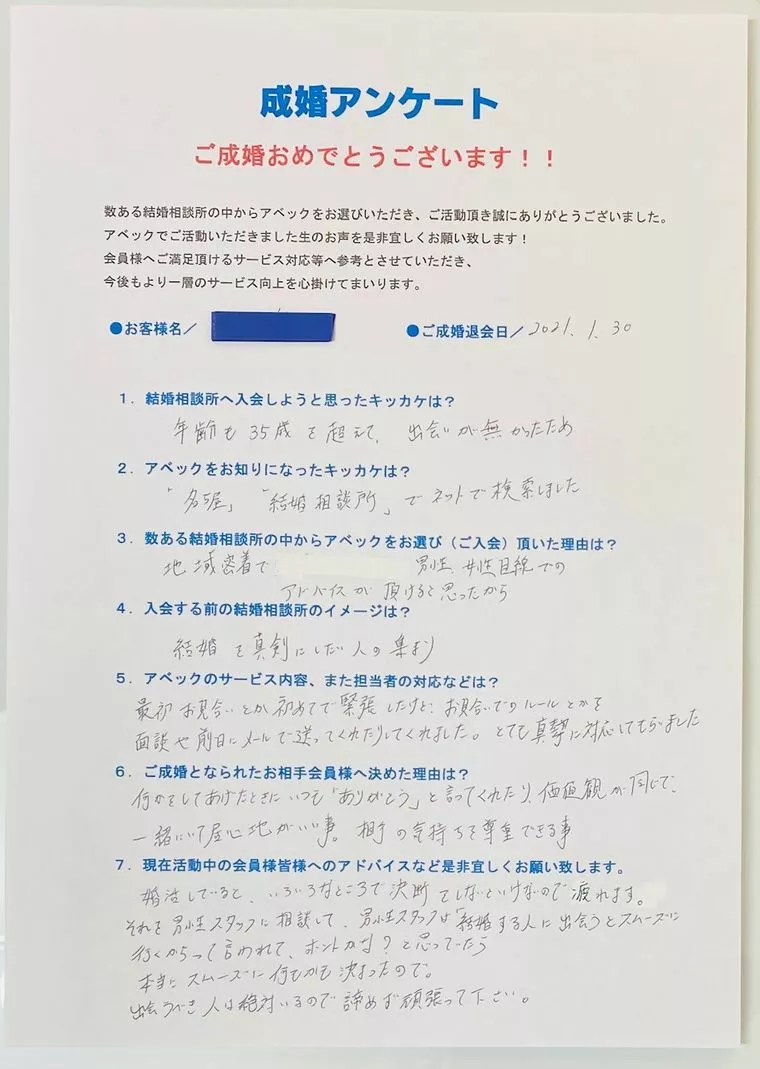 成婚アンケート
ご成婚おめでとうございます！！
数ある結婚相談所の中からアベックをお選びいただき、ご活動頂き誠にありがとうございました。
アベックでご活動いただきました生のお声を是非宜しくお願い致します！
会員様へご満足頂けるサービス対応等へ参考とさせていただき、
今後もより一層のサービス向上を心掛けてまいります。
●お客様名／ ●ご成婚退会日／ 2021. 1. 30
1．結婚相談所へ入会しようと思ったキッカケは？
年齢も35歳を超えて、出会いが無かったため
2．アベックをお知りになったキッカケは？
「名古屋」「結婚相談所」でネットで検索しました
3．数ある結婚相談所の中からアベックをお選び（ご入会）頂いた理由は？
地域密着で 男性、女性目線での
アドバイスが頂けると思ったから
4．入会する前の結婚相談所のイメージは？
結婚を真剣にしたい人の集まり
5．アベックのサービス内容、また担当者の対応などは？
最初お見合いとか初めてで緊張したけど、お見合いでのルールとかを
面談や前日にメールで送ってくれたりしてくれました。とても真摯に対応してもらいました
6．ご成婚となられたお相手会員様へ決めた理由は？
何かをしてあげたときにいつも「ありがとう」と言ってくれたり、価値観が同じで、
一緒にいて居心地がいい事。相手の気持ちを尊重できる事
7．現在活動中の会員様皆様へのアドバイスなど是非宜しくお願い致します。
婚活していると、いろいろなところで決断をしないといけないので疲れます。
それを男性スタッフに相談して、男性スタッフは「結婚する人に出会うとスムーズに
行くからって言われて、ホントかな？と思っていたら
本当にスムーズに何もかも決まったので。
出会うべき人は絶対いるので諦めず頑張って下さい。